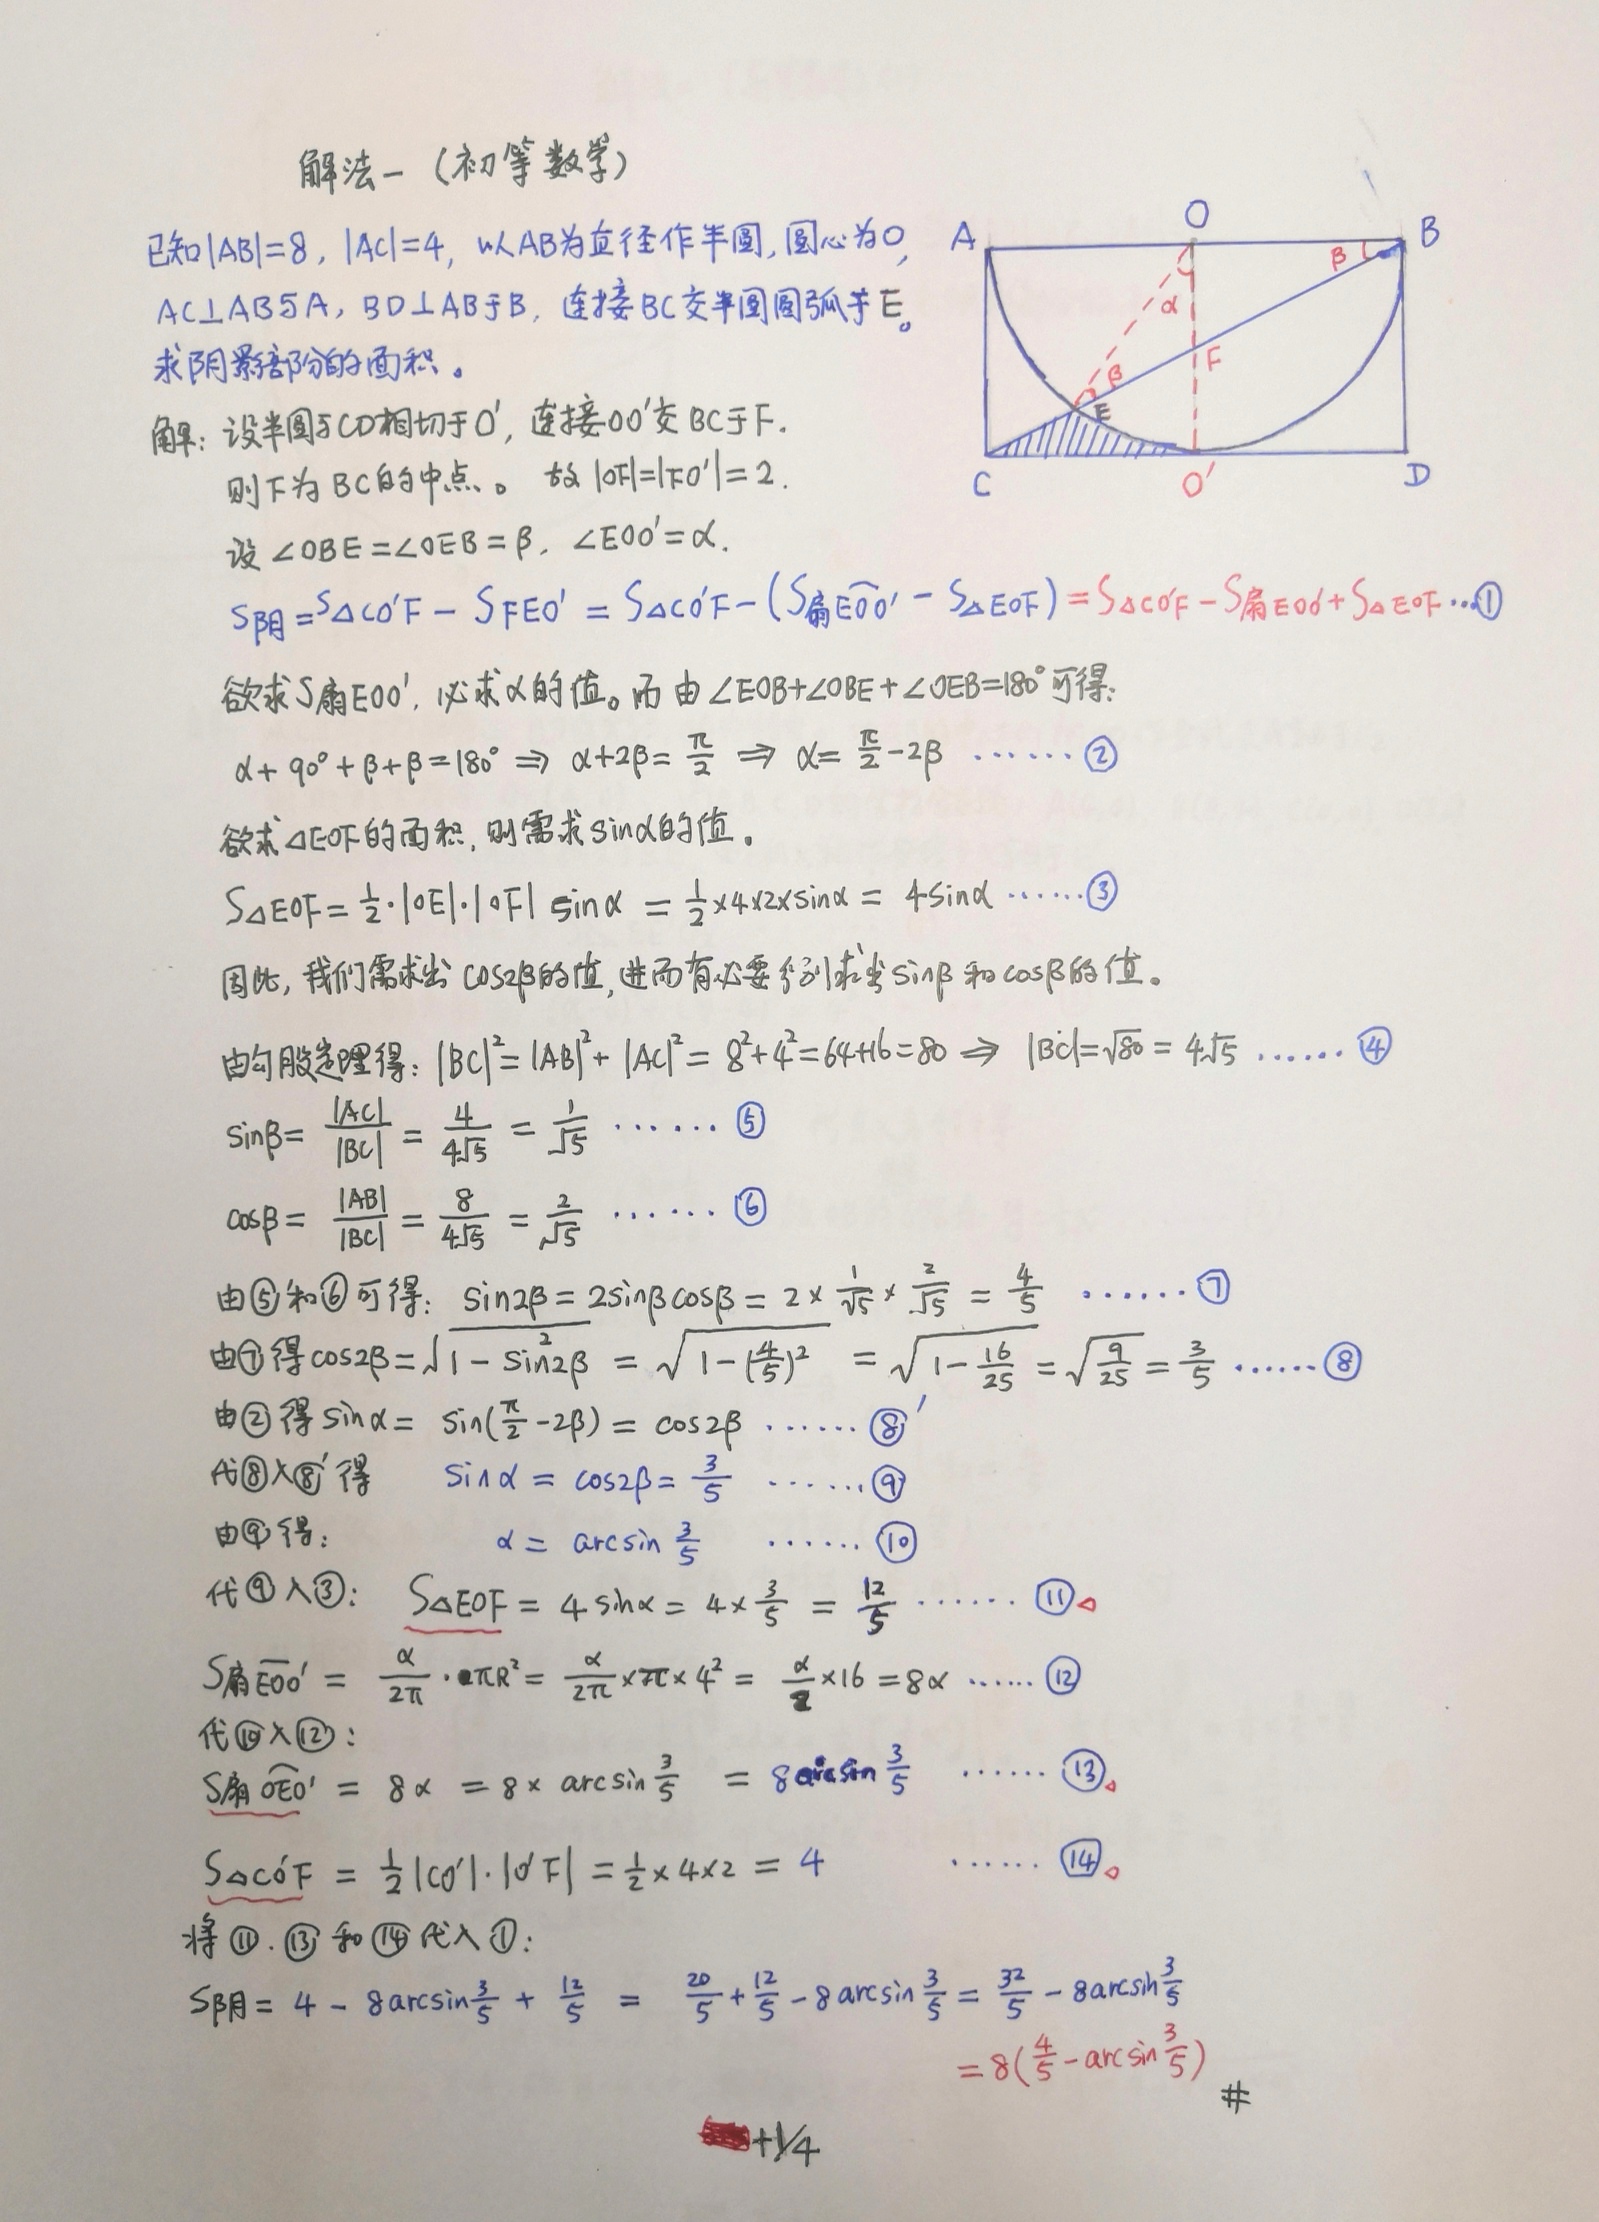 解法一(初等数学)
已知|AB|=8, |AC|=4, 以AB为直径作半圆,圆心为O,
AC⊥AB与A, BD⊥AB于B, 连接BC交半圆圆弧于E。
求阴影部分的面积。
A
O
B
β
α
F
β
E
C
O′
D
解: 设半圆与CD相切于O′, 连接OO′交BC于F.
则F为BC的中点。故|OF|=|FO′|=2.
设∠OBE=∠OEB=β, ∠EOO′=α.
S阴=S△CO′F - SFEO′ = S△CO′F-(S扇EOO′ - S△EOF) = S△CO′F - S扇EOO′ + S△EOF …①
欲求S扇EOO′, 必求α的值。而由∠EOB+∠OBE+∠OEB=180°可得:
α+90°+β+β=180° ⇒ α+2β=π/2 ⇒ α=π/2-2β ……②
欲求△EOF的面积,则需求sinα的值。
S△EOF=1/2·|OE|·|OF| sinα = 1/2×4×2×sinα = 4sinα ……③
因此,我们需求出cos2β的值,进而有必要分别求出sinβ和cosβ的值。
由勾股定理得: |BC|²=|AB|²+|AC|²=8²+4²=64+16=80 ⇒ |BC|=√80=4√5 ……④
sinβ=|AC|/|BC|=4/4√5=1/√5 ……⑤
cosβ=|AB|/|BC|=8/4√5=2/√5 ……⑥
由⑤和⑥可得: sin2β=2sinβcosβ=2×1/√5×2/√5=4/5 ……⑦
由⑦得cos2β=√(1-sin²2β)=√(1-(4/5)²)=√(1-16/25)=√(9/25)=3/5 ……⑧
由②得sinα=sin(π/2-2β)=cos2β ……⑧′
代⑧入⑧′得 sinα=cos2β=3/5 ……⑨
由⑨得: α=arcsin 3/5 ……⑩
代⑨入③: S△EOF=4sinα=4×3/5=12/5 ……⑪
S扇EOO′=α/2π·πR²=α/2π×π×4²=α/2×16=8α ……⑫
代⑩入⑫:
S扇OEO′=8α=8×arcsin 3/5=8arcsin 3/5 ……⑬
S△CO′F=1/2|CO′|·|O′F|=1/2×4×2=4 ……⑭
将⑪.⑬和⑭代入①:
S阴=4-8arcsin 3/5+12/5=20/5+12/5-8arcsin 3/5=32/5-8arcsin 3/5
=8(4/5-arcsin 3/5)
#
+1/4